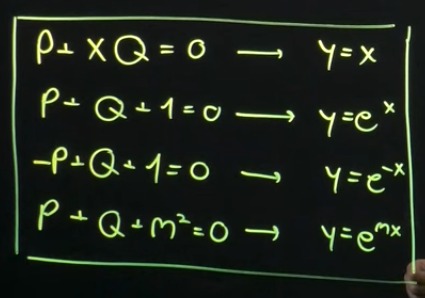 P + xQ = 0 → y = x
P + Q + 1 = 0 → y = eˣ
-P + Q + 1 = 0 → y = e⁻ˣ
P + Q + m² = 0 → y = eᵐˣ